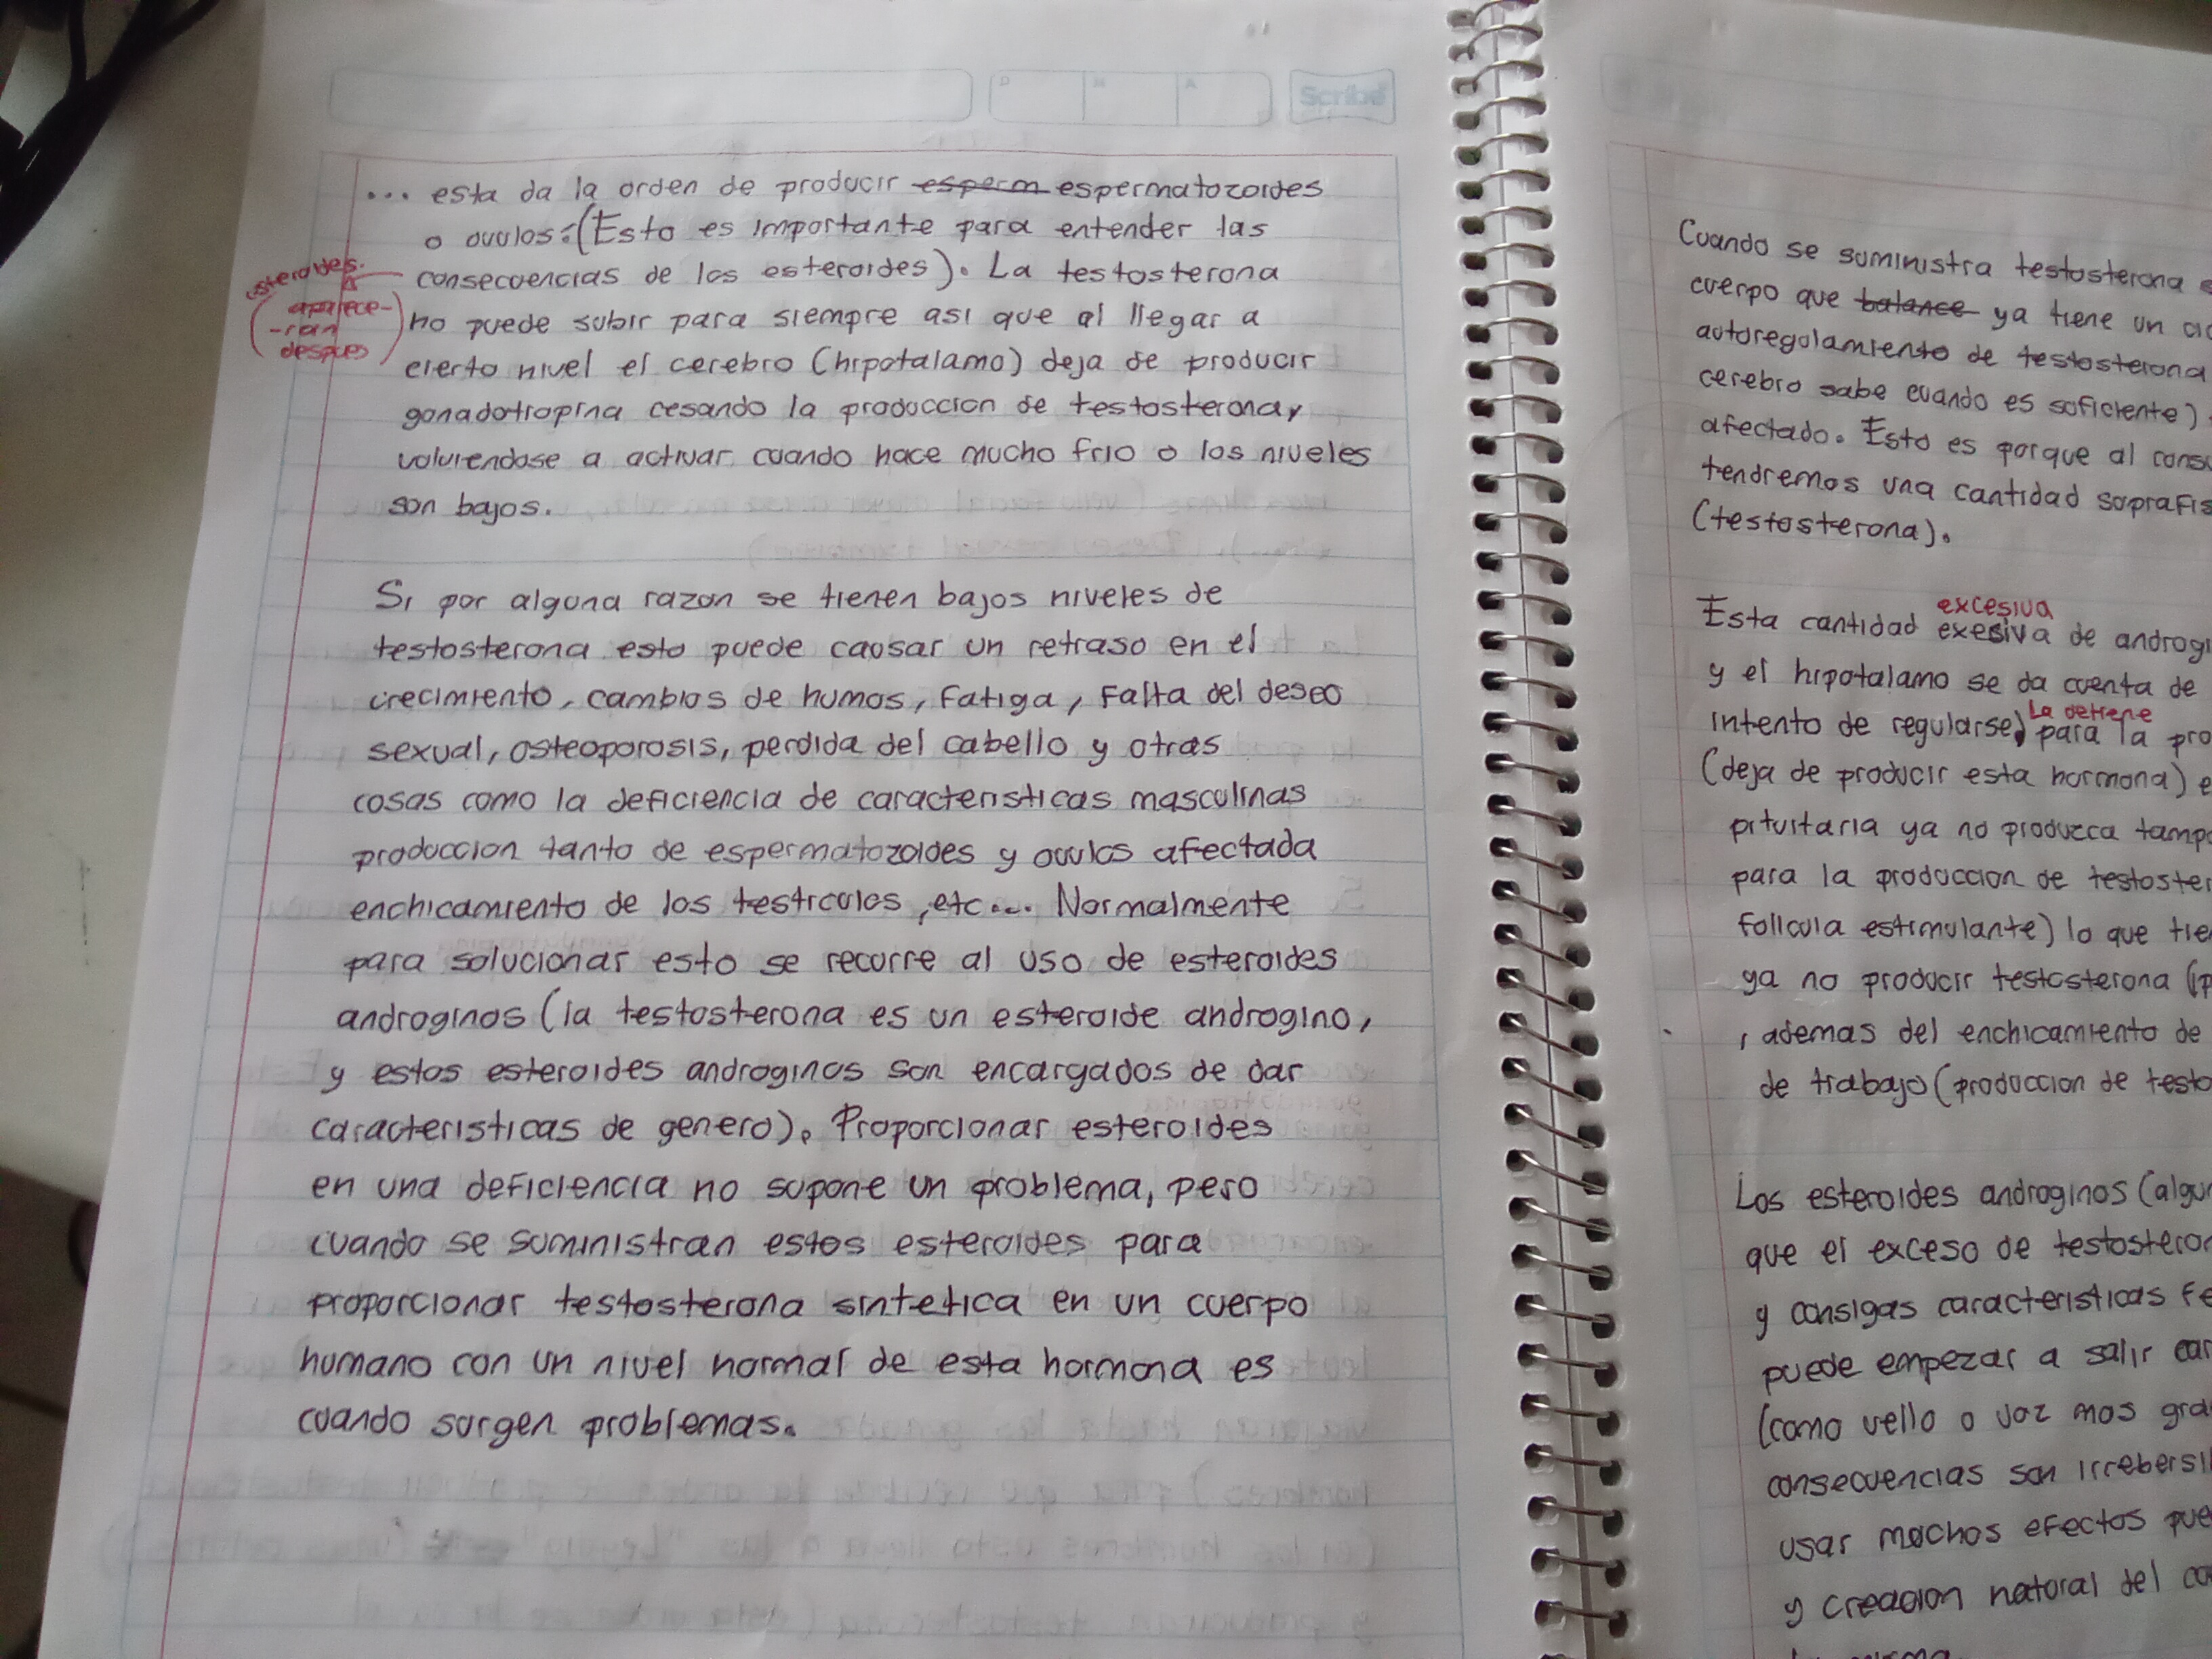 Scribe
... esta da la orden de producir esperm espermatozoides
o ovulos:(Esto es importante para entender las
consecuencias de los esteroides). La testosterona
no puede subir para siempre asi que al llegar a
cierto nivel el cerebro (hipotalamo) deja de producir
gonadotropina cesando la produccion de testosterona,
volviendose a activar cuando hace mucho frio o los niveles
son bajos.
esteroides.
(aparece-
-ran
despues)
Si por alguna razon se tienen bajos niveles de
testosterona esto puede causar un retraso en el
crecimiento, cambios de humos, fatiga, falta del deseo
sexual, osteoporosis, perdida del cabello y otras
cosas como la deficiencia de caracteristicas masculinas
produccion tanto de espermatozoides y ovulos afectada
enchicamiento de los testiculos, etc... Normalmente
para solucionar esto se recurre al uso de esteroides
androginos (la testosterona es un esteroide androgino,
y estos esteroides androginos son encargados de dar
caracteristicas de genero). Proporcionar esteroides
en una deficiencia no supone un problema, pero
cuando se suministran estos esteroides para
proporcionar testosterona sintetica en un cuerpo
humano con un nivel normal de esta hormona es
cuando surgen problemas.
Cuando se suministra testosterona
cuerpo que balance ya tiene un
autoregulamiento de testosterona
cerebro sabe cuando es suficiente)
afectado. Esto es porque al
tendremos una cantidad
(testosterona).
excesiva
Esta cantidad exesiva de
y el hipotalamo se da cuenta de
La detiene
intento de regularse, para la
(deja de producir esta hormona)
pituitaria ya no produzca
para la produccion de
folicula estimulante) lo que
ya no producir testosterona
, ademas del enchicamiento de
de trabajo (produccion de
Los esteroides androginos
que el exceso de
y consigas caracteristicas
puede empezar a salir
(como vello o voz mas
consecuencias son
usar muchos efectos
y creacion natural del